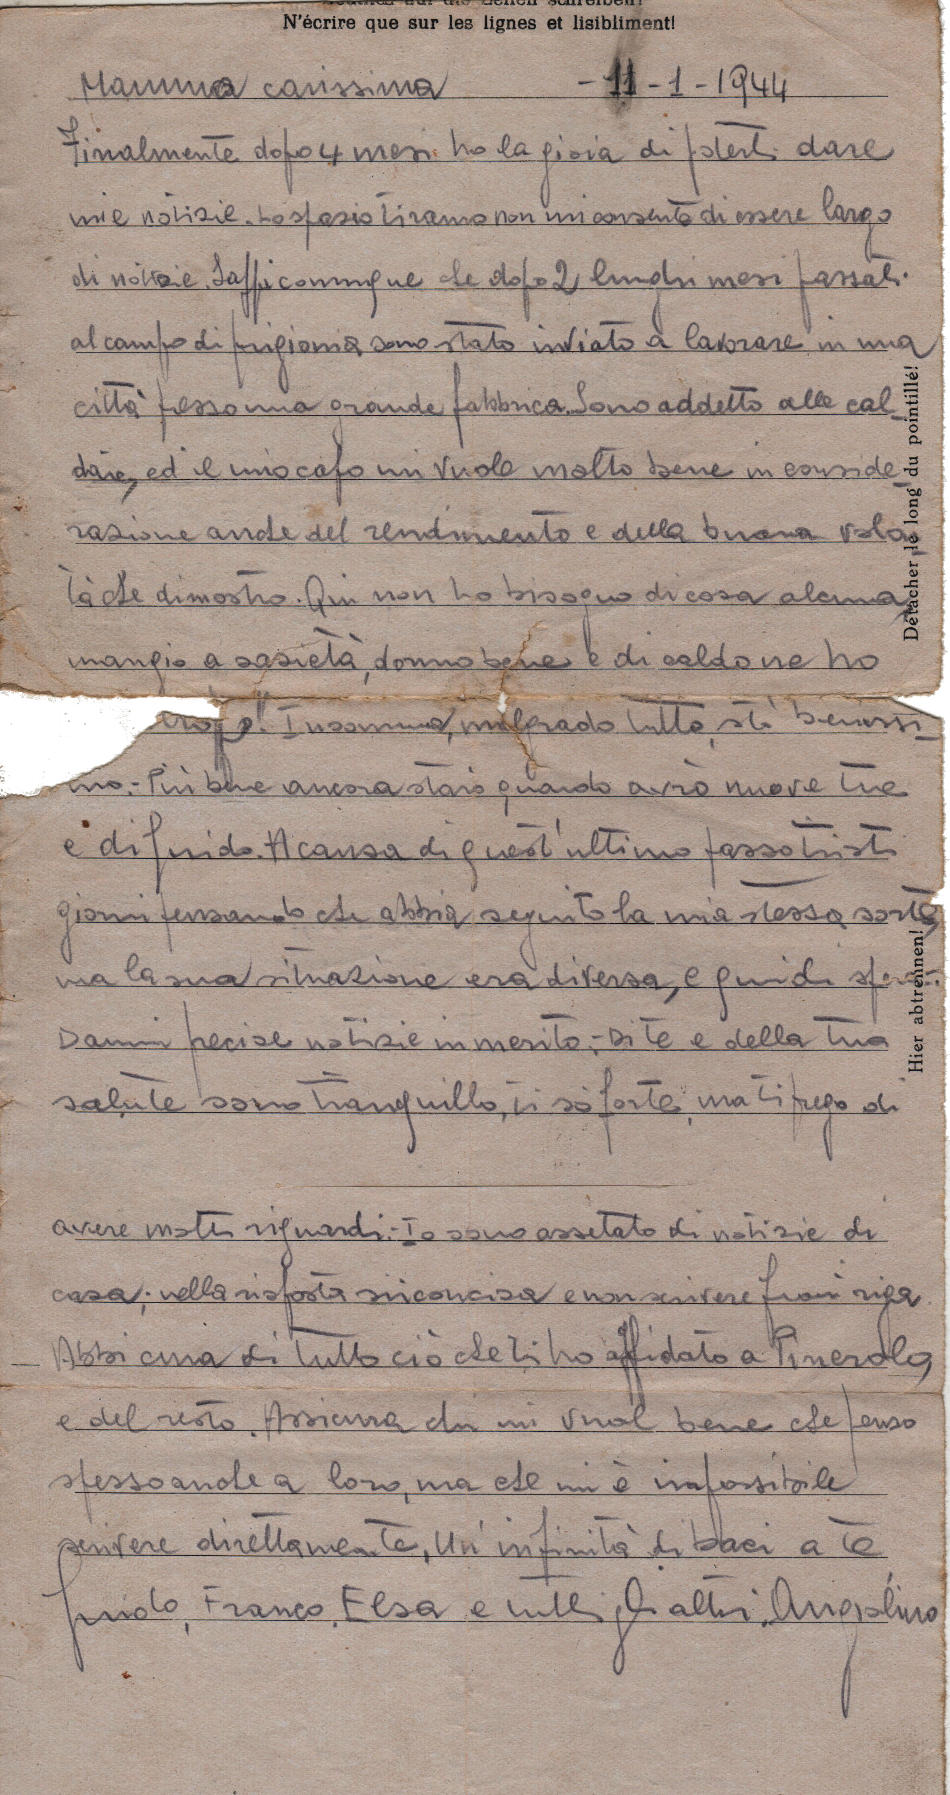 N'écrire que sur les lignes et lisibliment!
Mamma carissima -11-1-1944
Finalmente dopo 4 mesi ho la gioia di poterti dare
mie notizie. Lo spazio tiranno non mi consente di essere largo
di notizie. Sappi comunque che dopo 2 lunghi mesi passati
al campo di prigionia sono stato inviato a lavorare in una
città presso una grande fabbrica. Sono addetto alle cal-
daie, ed il mio capo mi vuole molto bene in conside
razione anche del rendimento e della buona volon
tà che dimostro. Qui non ho bisogno di cosa alcuna,
mangio a sazietà, dormo bene e di caldo ne ho
troppo! Insomma, malgrado tutto, stò benissi-
mo.- Più bene ancora starò quando avrò nuove tue
e di Guido. A causa di quest'ultimo passo tristi
giorni pensando che abbia seguito la mia stessa sorte,
ma la sua situazione era diversa, e quindi spero.
Dammi precise notizie in merito.- Di te e della tua
salute sono tranquillo, ti sò forte, ma ti prego di
avere molti riguardi.- Io sono assetato di notizie di
casa; nella risposta sii concisa e non scrivere fuori riga
Abbi cura di tutto ciò che ti ho affidato a Pinerolo,
e del resto. Assicura chi mi vuol bene che penso
spesso anche a loro, ma che mi è impossibile
scrivere direttamente. Un'infinità di baci a te
Guido, Franco, Elsa e tutti gli altri. Angelino
Détacher le long du pointillé!
Hier abtrennen!